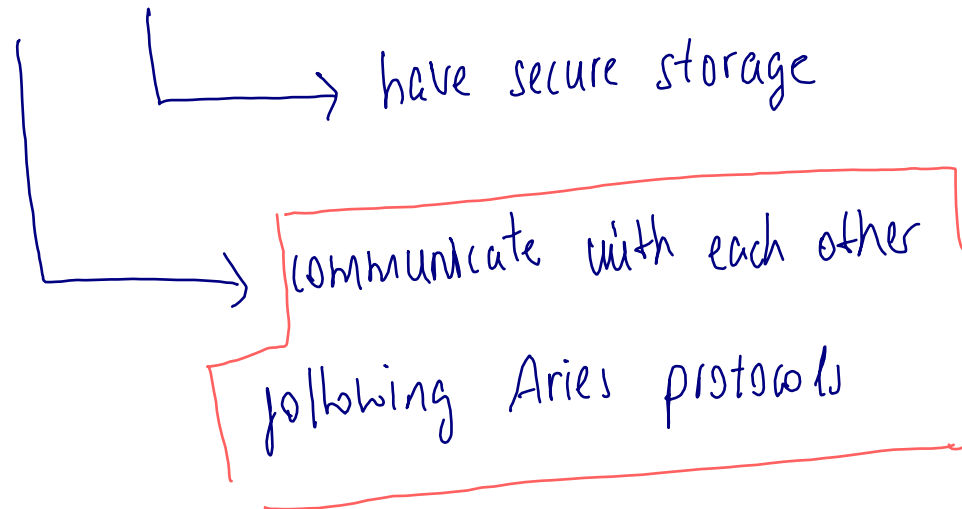 have secure storage
communicate with each other
following Aries protocols